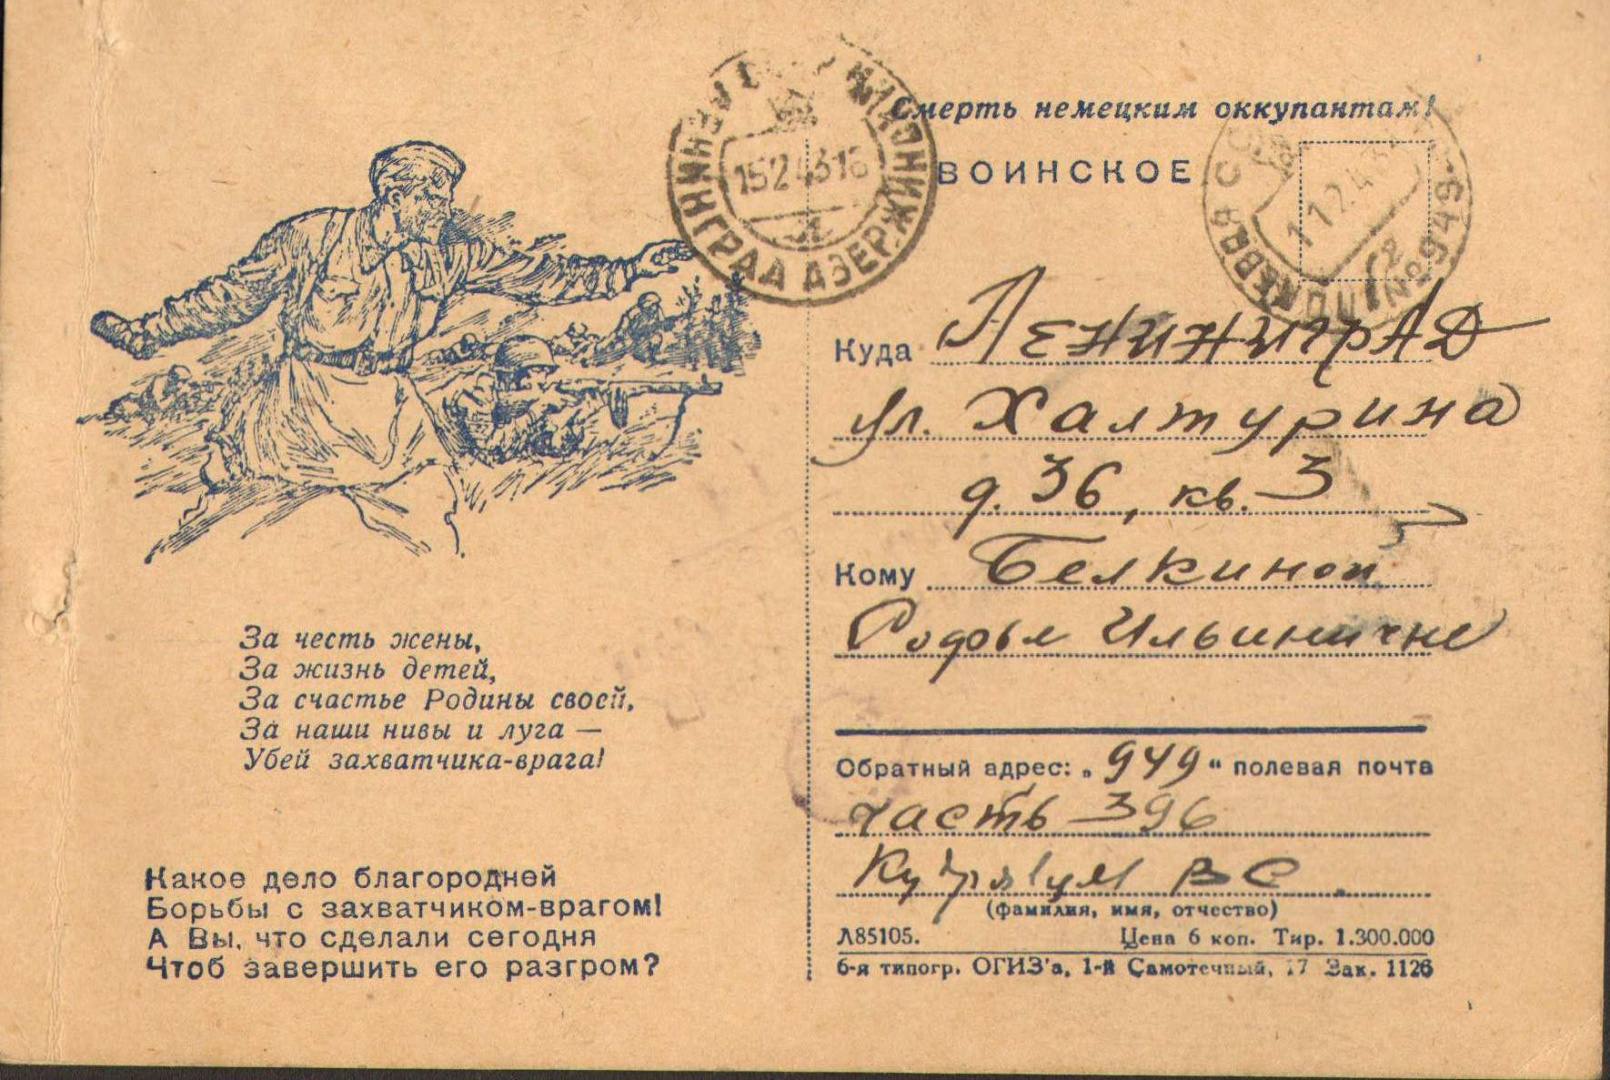 Смерть немецким оккупантам!
ВОИНСКОЕ
ЛЕНИНГРАД ДЗЕРЖИНСКИЙ
15243 18
11243
№ 949
Куда ЛЕНИНгрАД
ул. Халтурина
д. 36, кв. 3
Кому Белкиной
Софье Ильиничне
Обратный адрес: „949“ полевая почта
часть 396
ВС
(фамилия, имя, отчество)
Л85105. Цена 6 коп. Тир. 1.300.000
6-я типогр. ОГИЗ'а, 1-й Самотечный, 17 Зак. 1126
За честь жены,
За жизнь детей,
За счастье Родины своей,
За наши нивы и луга —
Убей захватчика-врага!
Какое дело благородней
Борьбы с захватчиком-врагом!
А Вы, что сделали сегодня
Чтоб завершить его разгром?